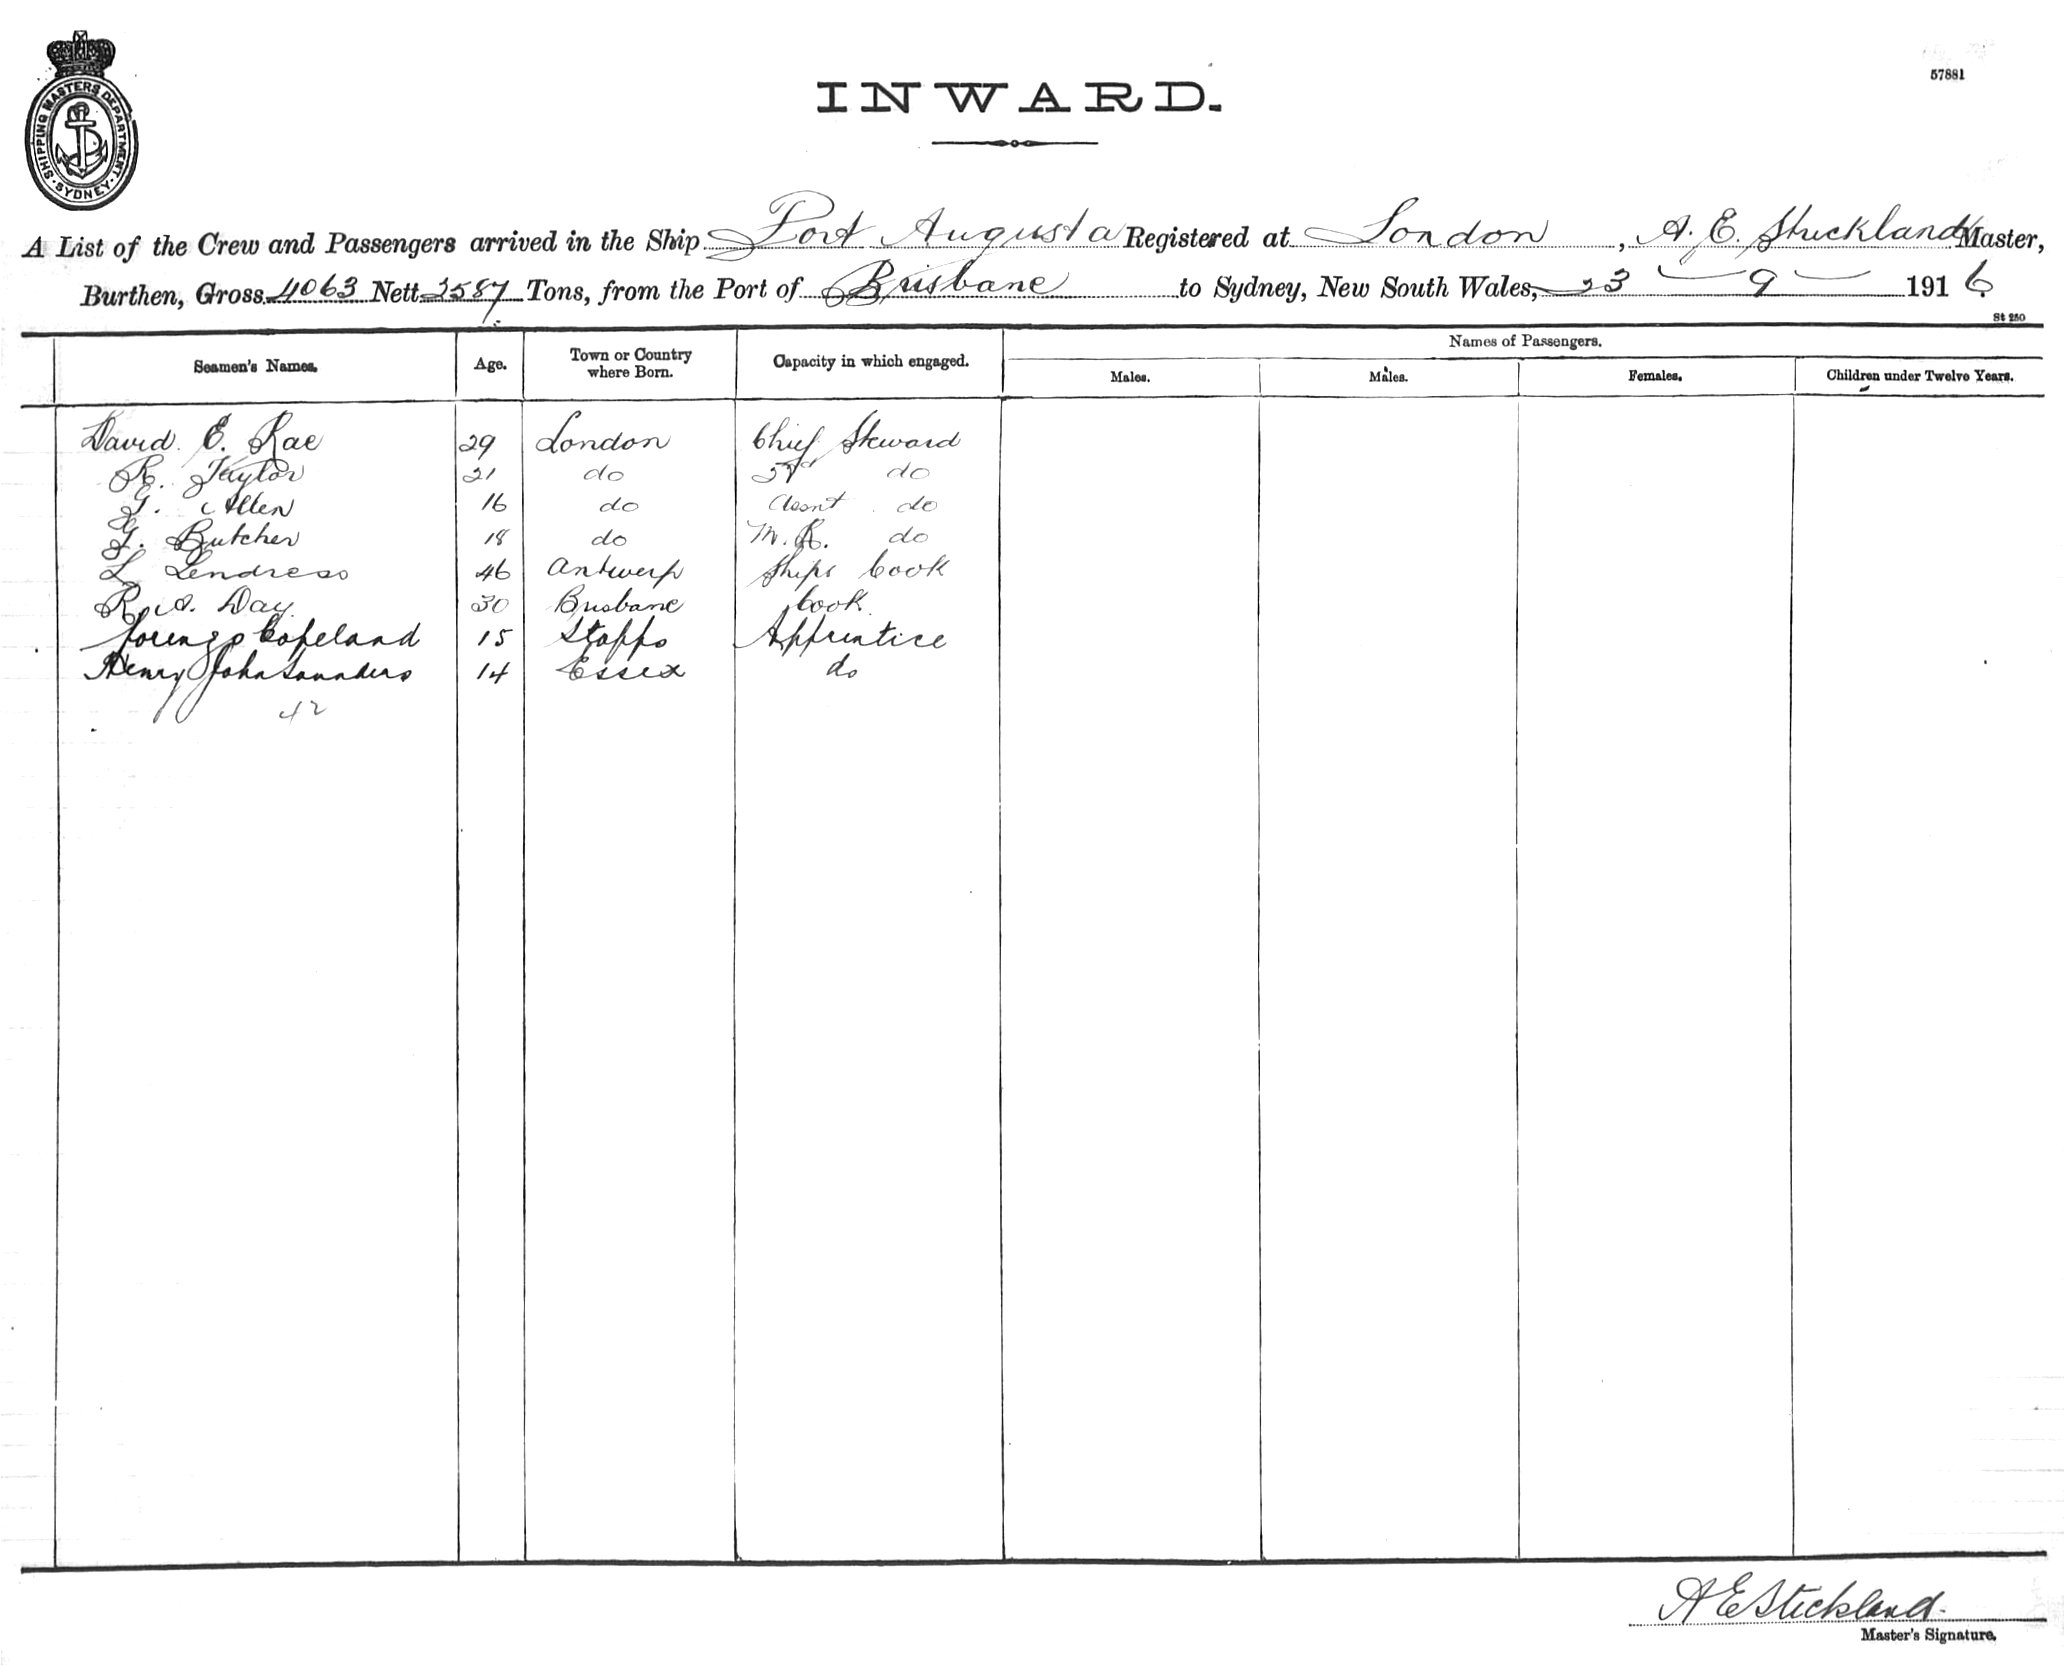 SHIPPING MASTERS DEPARTMENT
SYDNEY
57881
INWARD.
A List of the Crew and Passengers arrived in the Ship Port Augusta Registered at London, A. E. Stickland Master,
Burthen, Gross 4063 Nett 2587 Tons, from the Port of Brisbane to Sydney, New South Wales, 23 - 9 - 1916
St 250
Seamen's Names. Age. Town or Country where Born. Capacity in which engaged. Names of Passengers.
Males. Males. Females. Children under Twelve Years.
David E. Rae 29 London Chief Steward
R. Taylor 21 do 2nd do
G. Allen 16 do Assnt do
G. Butcher 18 do M. R. do
L Lendress 46 Antwerp Ships Cook
R. A. Day 30 Brisbane Cook
Copeland 15 Staffs Apprentice
Henry John Saunders 14 Essex do
42
A E Stickland
Master's Signature.